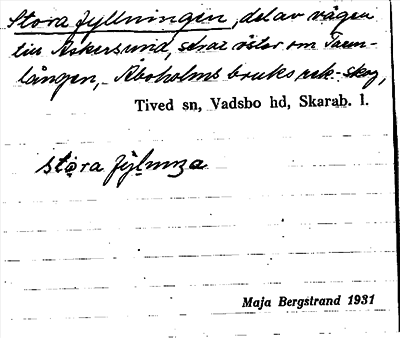 Stora fyllningen, del av vägen
till Askersund, strax öster om Taum-
lången, - Åboholms bruks rek.-skog,
Tived sn, Vadsbo hd, Skarab. l.
stọra fýḷnıŋa
Maja Bergstrand 1931